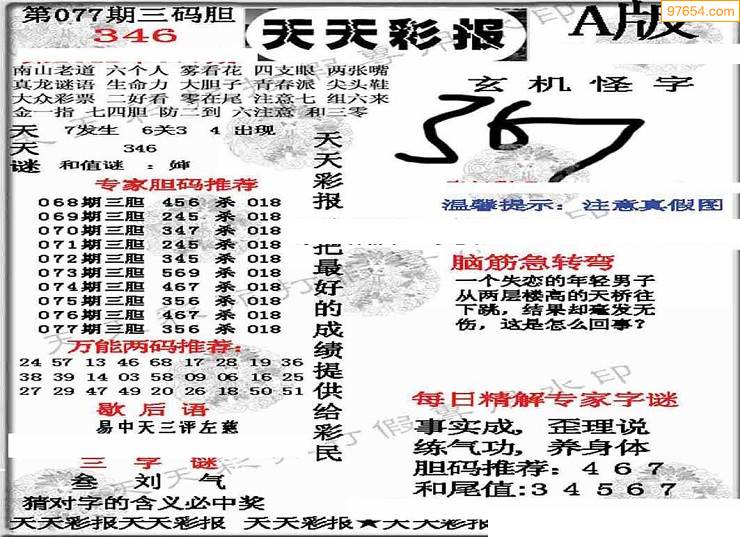 第077期三码胆
346
天天彩报
A版
97654.com
南山老道 六个人 雾看花 四支眼 两张嘴
真龙谜语 生命力 大胆子 青春派 尖头鞋
大众彩票 二好看 零在尾 注意七 组六来
金一指 七四胆 防二到 六注意 和三零
天 7发生 6关3 4 出现
天 346
谜 和值谜 :
专家胆码推荐
068期三胆 456 杀 018
069期三胆 245 杀 018
070期三胆 347 杀 018
071期三胆 245 杀 018
072期三胆 345 杀 018
073期三胆 569 杀 018
074期三胆 467 杀 018
075期三胆 356 杀 018
076期三胆 467 杀 018
077期三胆 356 杀 018
万能两码推荐:
24 57 13 46 68 17 28 19 36
38 39 14 03 58 09 06 16 25
27 29 47 49 20 26 18 50 51
歇后语
易中天三评左慈
三字谜
叁刘气
猜对字的含义必中奖
天天彩报
把最好的成绩提供给彩民
玄机怪字
367
温馨提示: 注意真假图
脑筋急转弯
一个失恋的年轻男子
从两层楼高的天桥往
下跳, 结果却毫发无
伤, 这是怎么回事?
每日精解专家字谜
事实成, 歪理说
练气功, 养身体
胆码推荐: 467
和尾值:34567
天天彩报天天彩报 天天彩报★天天彩报